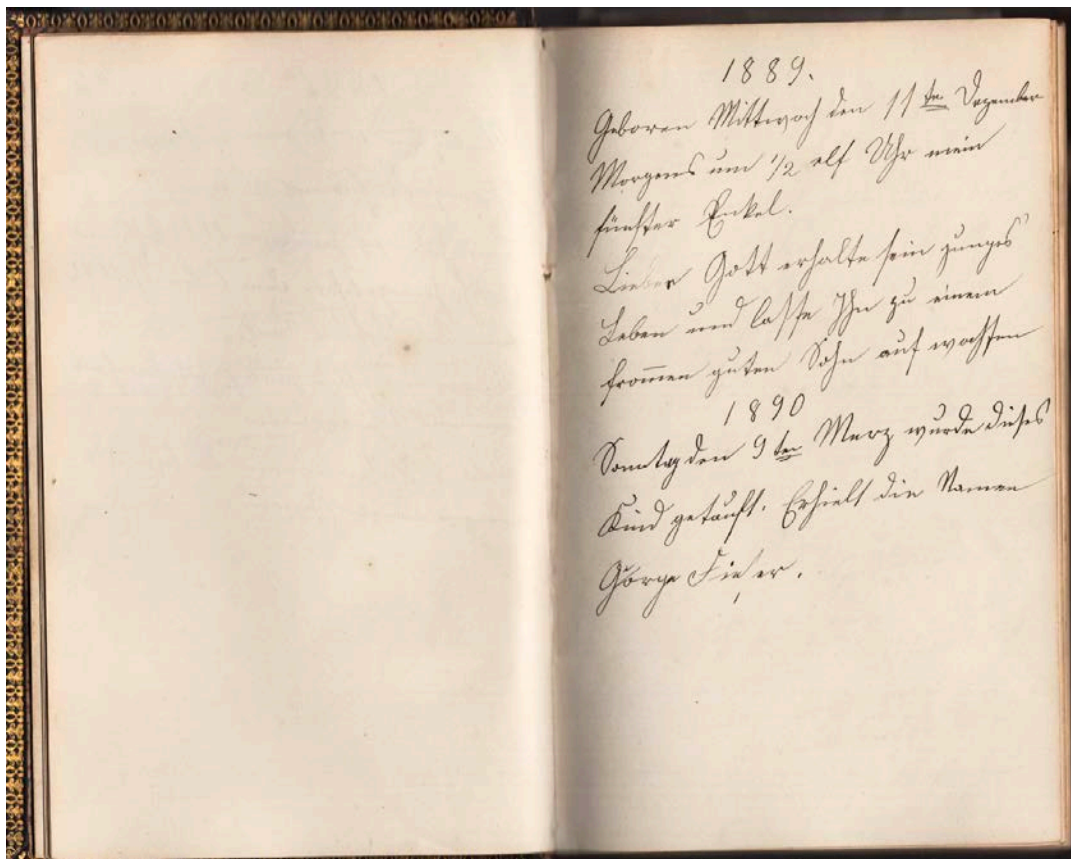 1889.
Geboren Mittwoch den 11ten Dezember
Morgens um 1/2 elf Uhr mein
fünfter Enkel.
Lieber Gott erhalte sein junges
Leben und lasse Ihn zu einem
from̅en guten Sohn auf wachsen
1890
Sonntag den 9ten Merz wurde dieses
Kind getauft. Erhielt die Namen
George